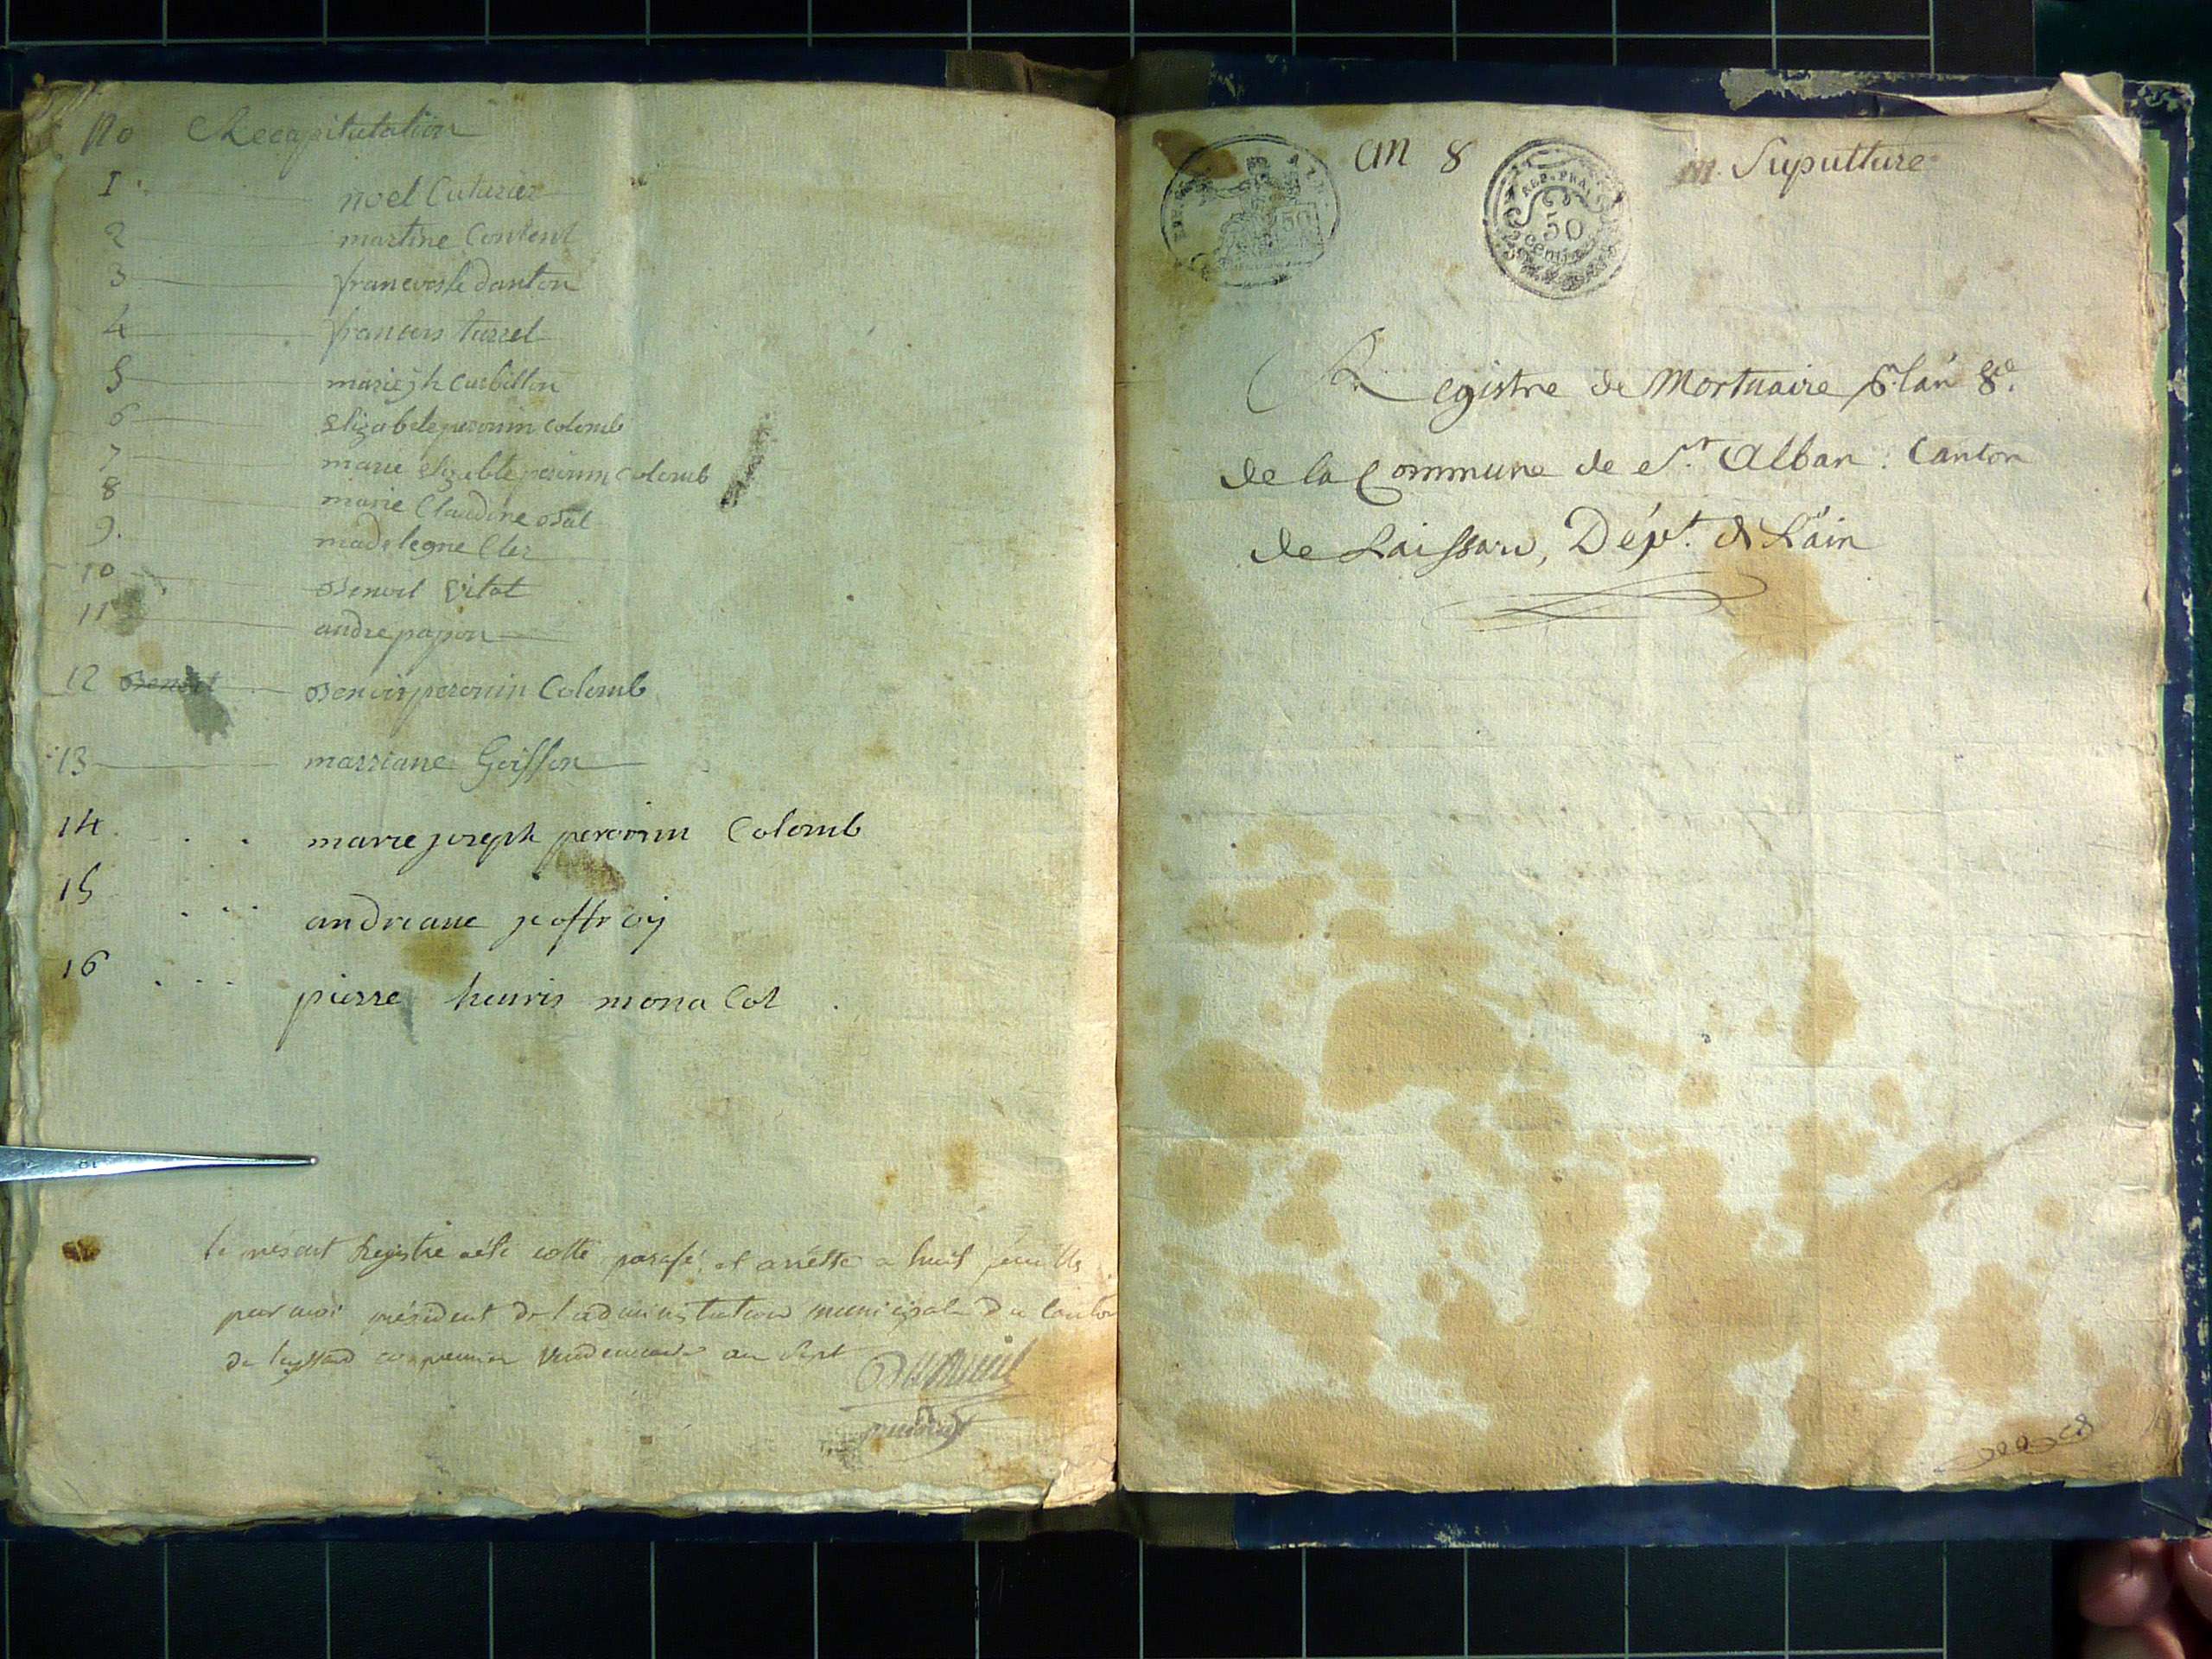 No Recapitulation
1 noel Cuturier
2 martine Content
3 francoise danton
4 francois tarrel
5 marie jh Curbillon
6 Elizabete peronin Colomb
7 marie Elizabte peronin Colomb
8 marie Claudine
9. madelegne Cler
10 Benoit Vitot
11 andre papon
12 Benoit Benoit peronin Colomb
13 marriane Goiffon
14 marie joseph peronin Colomb
15 andreane jeoffroy
16 pierre henris mona Cot
le présent Registre a été cotté parafé, et arrêtté a huit feuillets
par moi président de l'administration municipale du Canton
de leyssard ce premier Vendemiaire an Sept
an 8 Supulture
REP. FRA.
50
centim
Registre de Mortuaire pr. l'an 8e.
de la Commune de St. Alban. Canton
de Laissard, Dépt. de L'ain